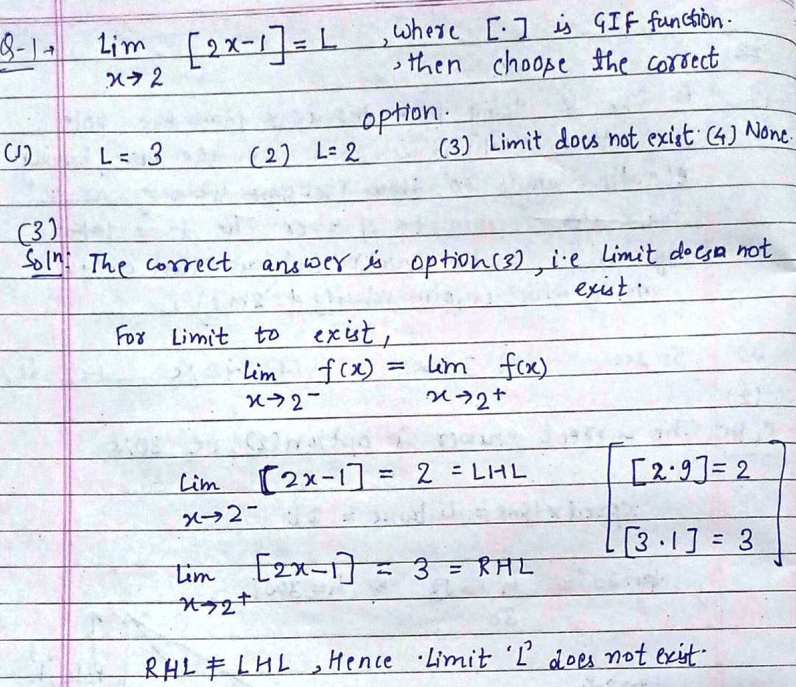 Q-1→ Lim [2x-1] = L , where [.] is GIF function.
x→2 , then choose the correct
option.
(1) L = 3 (2) L = 2 (3) Limit does not exist. (4) None.
(3)
Soln: The correct answer is option(3), i.e Limit does not
exist.
For Limit to exist,
Lim f(x) = Lim f(x)
x→2- x→2+
Lim [2x-1] = 2 = LHL [2.9] = 2
x→2-
[3.1] = 3
Lim [2x-1] = 3 = RHL
x→2+
RHL ≠ LHL , Hence Limit 'L' does not exist.